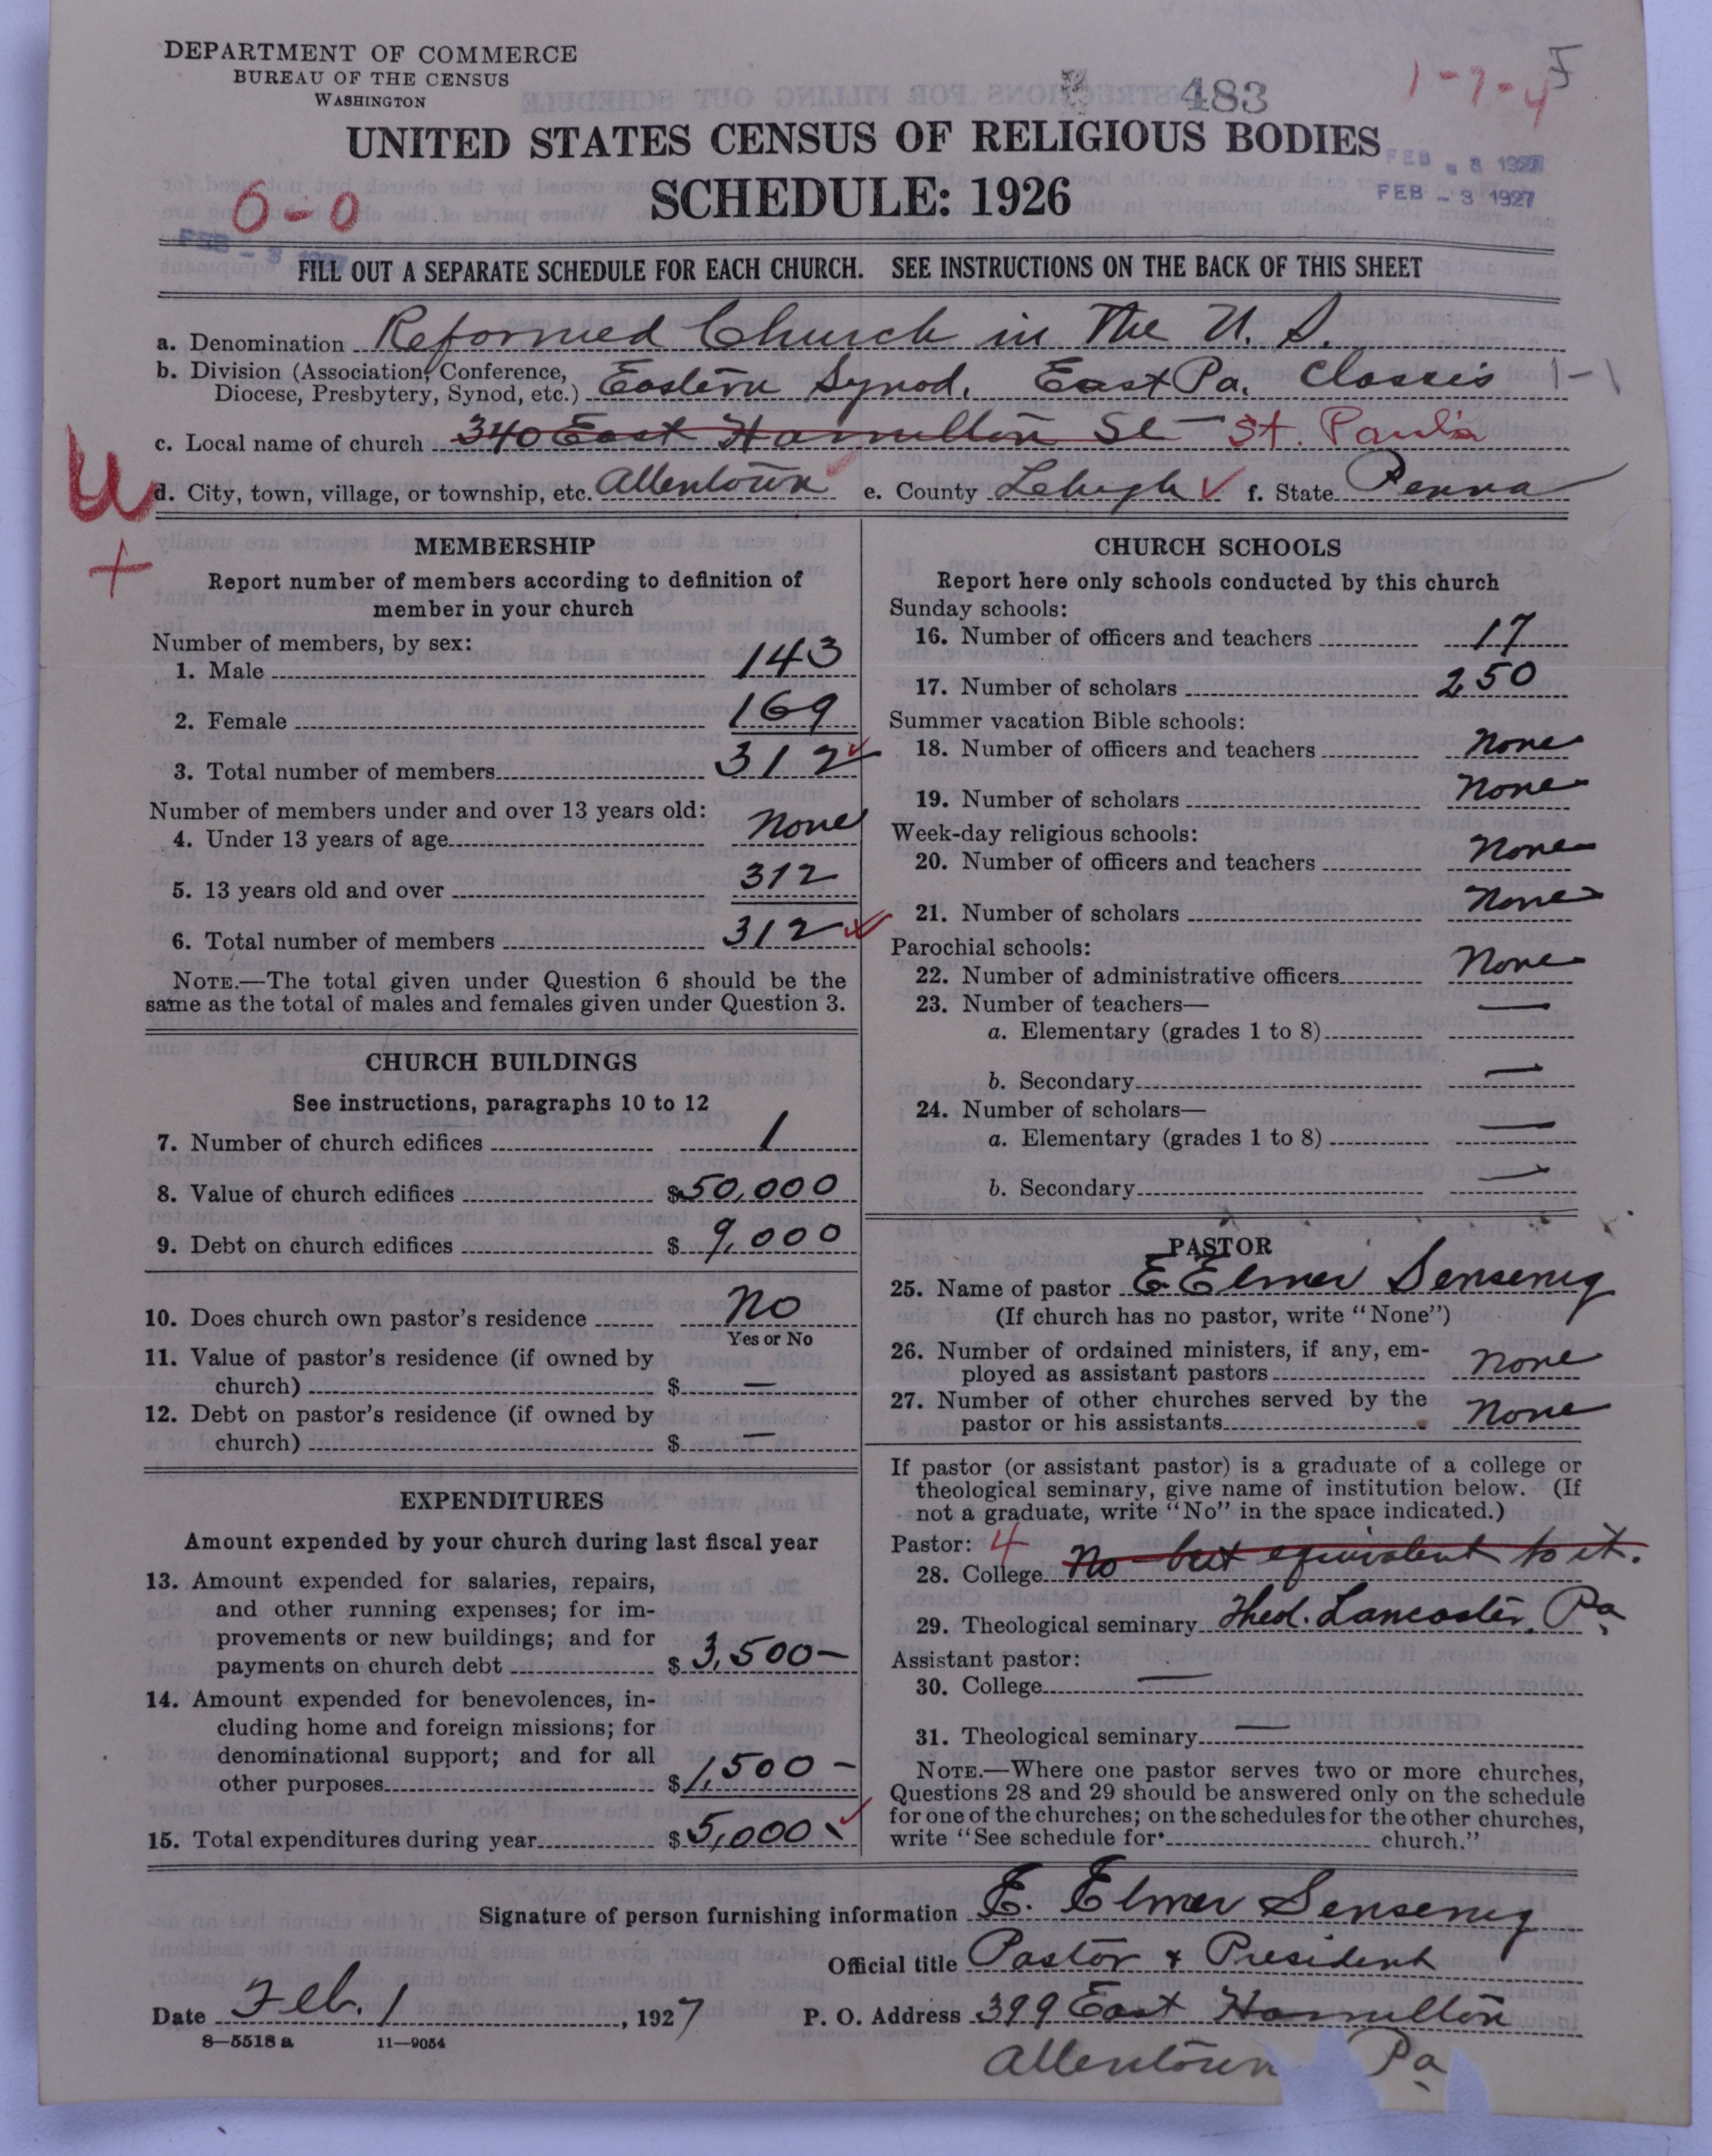 DEPARTMENT OF COMMERCE
BUREAU OF THE CENSUS
WASHINGTON
483
1-7-4
UNITED STATES CENSUS OF RELIGIOUS BODIES
FEB - 3 1927
SCHEDULE: 1926
FEB - 3 1927
0-0
FEB - 3 1927
FILL OUT A SEPARATE SCHEDULE FOR EACH CHURCH. SEE INSTRUCTIONS ON THE BACK OF THIS SHEET
a. Denomination Reformed Church in The U. S.
b. Division (Association, Conference,
Diocese, Presbytery, Synod, etc.) Eastern Synod, East Pa. Classis 1-1
c. Local name of church 340 East Hamilton St St. Paul's
d. City, town, village, or township, etc. Allentown e. County Lehigh f. State Penna
MEMBERSHIP
Report number of members according to definition of
member in your church
Number of members, by sex:
1. Male 143
2. Female 169
3. Total number of members 312
Number of members under and over 13 years old:
4. Under 13 years of age None
5. 13 years old and over 312
6. Total number of members 312
NOTE.—The total given under Question 6 should be the
same as the total of males and females given under Question 3.
CHURCH BUILDINGS
See instructions, paragraphs 10 to 12
7. Number of church edifices 1
8. Value of church edifices $50,000
9. Debt on church edifices $ 9,000
10. Does church own pastor's residence No
Yes or No
11. Value of pastor's residence (if owned by
church) $ —
12. Debt on pastor's residence (if owned by
church) $ —
EXPENDITURES
Amount expended by your church during last fiscal year
13. Amount expended for salaries, repairs,
and other running expenses; for im-
provements or new buildings; and for
payments on church debt $ 3,500–
14. Amount expended for benevolences, in-
cluding home and foreign missions; for
denominational support; and for all
other purposes $1,500 –
15. Total expenditures during year $5,000
CHURCH SCHOOLS
Report here only schools conducted by this church
Sunday schools:
16. Number of officers and teachers 17
17. Number of scholars 250
Summer vacation Bible schools:
18. Number of officers and teachers None
19. Number of scholars None
Week-day religious schools:
20. Number of officers and teachers None
21. Number of scholars None
Parochial schools:
22. Number of administrative officers None
23. Number of teachers—
a. Elementary (grades 1 to 8) —
b. Secondary —
24. Number of scholars—
a. Elementary (grades 1 to 8) —
b. Secondary —
PASTOR
25. Name of pastor E. Elmer Sensenig
(If church has no pastor, write "None")
26. Number of ordained ministers, if any, em-
ployed as assistant pastors None
27. Number of other churches served by the
pastor or his assistants None
If pastor (or assistant pastor) is a graduate of a college or
theological seminary, give name of institution below. (If
not a graduate, write "No" in the space indicated.)
Pastor: 4
28. College No – but equivalent to it.
29. Theological seminary Theol. Lancaster, Pa.
Assistant pastor:
30. College —
31. Theological seminary —
NOTE.—Where one pastor serves two or more churches,
Questions 28 and 29 should be answered only on the schedule
for one of the churches; on the schedules for the other churches,
write "See schedule for church."
Signature of person furnishing information E. Elmer Sensenig
Official title Pastor & President
Date Feb. 1, 1927 P. O. Address 399 East Hamilton
8—5518 a 11—9054
Allentown Pa